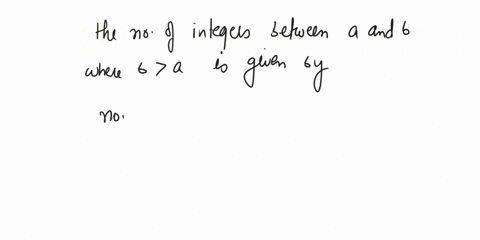 the no. of integers between a and b
where b > a is given by
no.